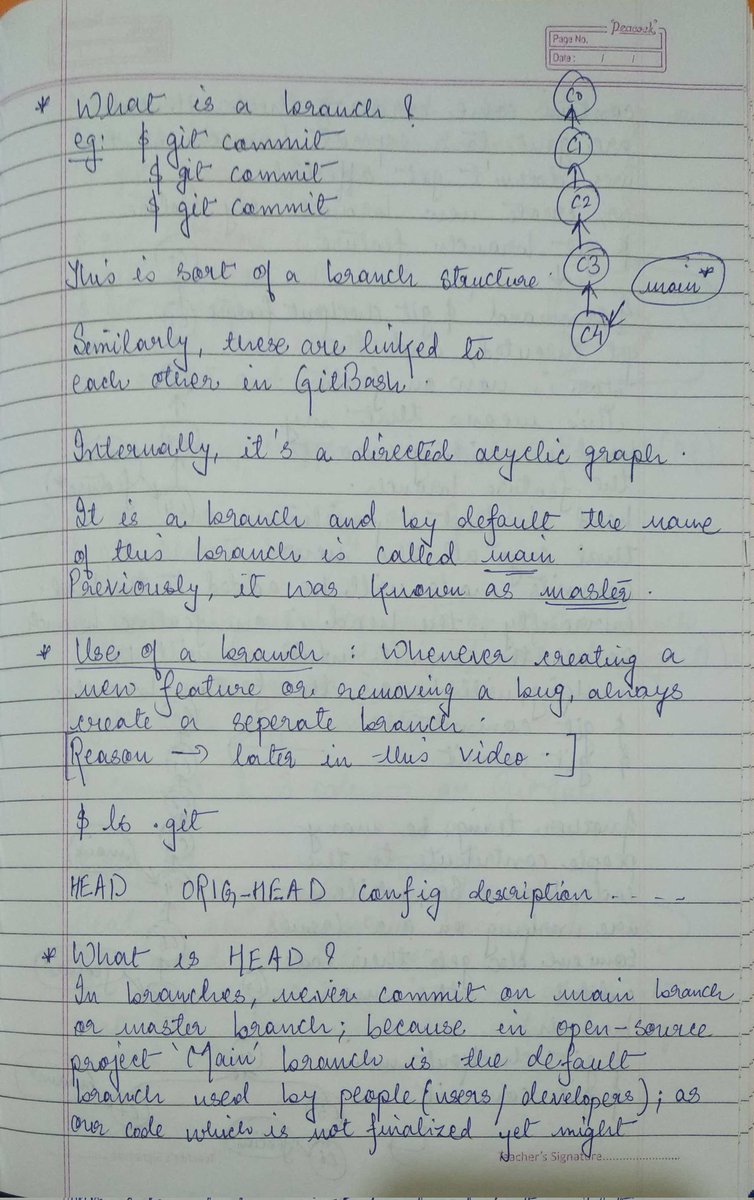 "Peacock"
Page No.
Date : / /
* What is a branch ?
eg: $ git commit
$ git commit
$ git commit
C0
C1
C2
C3
C4
main*
This is sort of a branch structure.
Similarly, these are linked to
each other in GitBash.
Internally, it's a directed acyclic graph.
It is a branch and by default the name
of this branch is called main.
Previously, it was known as master.
* Use of a branch : Whenever creating a
new feature or removing a bug, always
create a seperate branch.
[Reason → later in this video.]
$ ls .git
HEAD ORIG-HEAD config description .....
* What is HEAD ?
In branches, never commit on main branch
or master branch; because in open-source
project 'Main' branch is the default
branch used by people (users/developers); as
our code which is not finalized yet might
Teacher's Signature